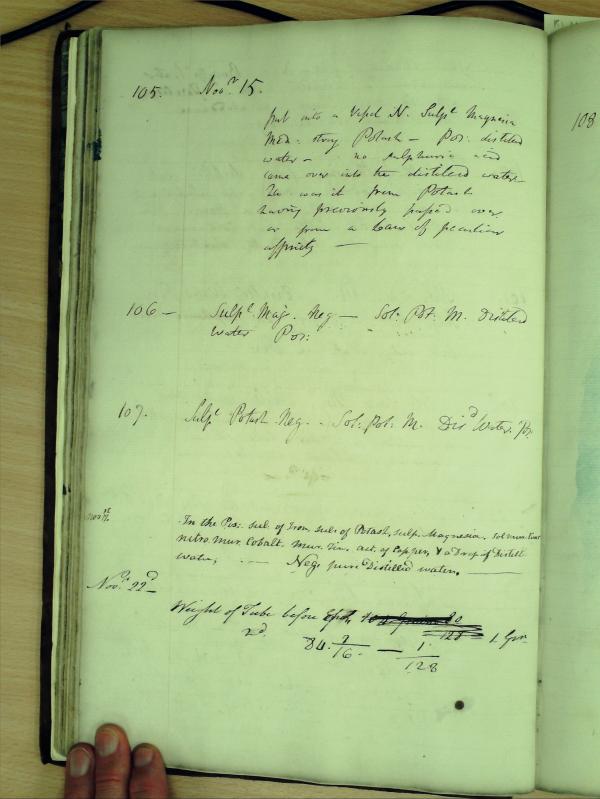 105. Novr 15.
put into a Vessel N. Sulpt Magnesia
Med. strong Potash — Pos. distilled
water — no sulphuric acid
came over into the distilled water —
was it from Potash
having previously passed over
or from a Law of peculiar
affinity —
108
106 — Sulpt Mag. Neg — Sol. Pot. M. Distilled
Water Pos:
107. Sulpt Potash Neg. - Sol. Pot. M. Disd Water. Pos.
In the Pos. sul. of Iron, sul. of Potash, sulp. Magnesia, sol mur.
nitro mur. Cobalt. Mur. Tin. act. of Copper, & a Drop of Distill
water, — Neg. pure Distilled water. —
Novr 22d
Weight of Tube before
84. 2/16 — 1/128 1 Grn